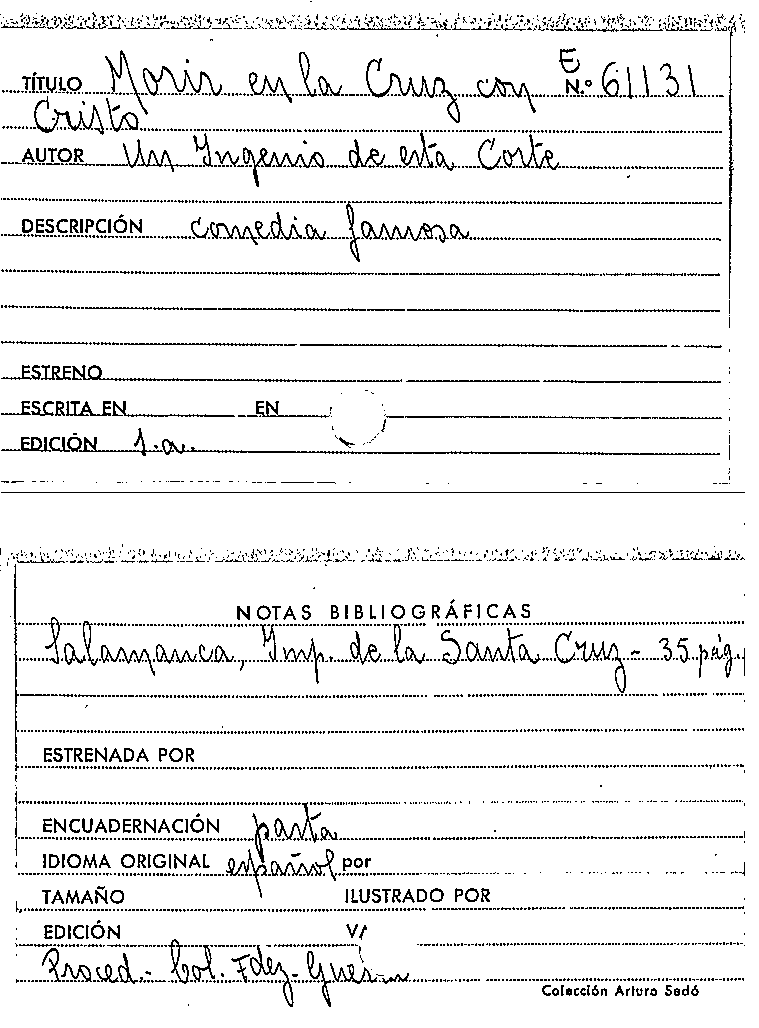 TÍTULO Morir en la Cruz con E N.º 61131
Cristo
AUTOR Un Ingenio de esta Corte
DESCRIPCIÓN comedia famosa
ESTRENO
ESCRITA EN EN
EDICIÓN s.a.
NOTAS BIBLIOGRÁFICAS
Salamanca, Imp. de la Santa Cruz - 35 pág.
ESTRENADA POR
ENCUADERNACIÓN pasta
IDIOMA ORIGINAL español por
TAMAÑO ILUSTRADO POR
EDICIÓN
Proced.- Col. Fdez-
Colección Arturo Sedó